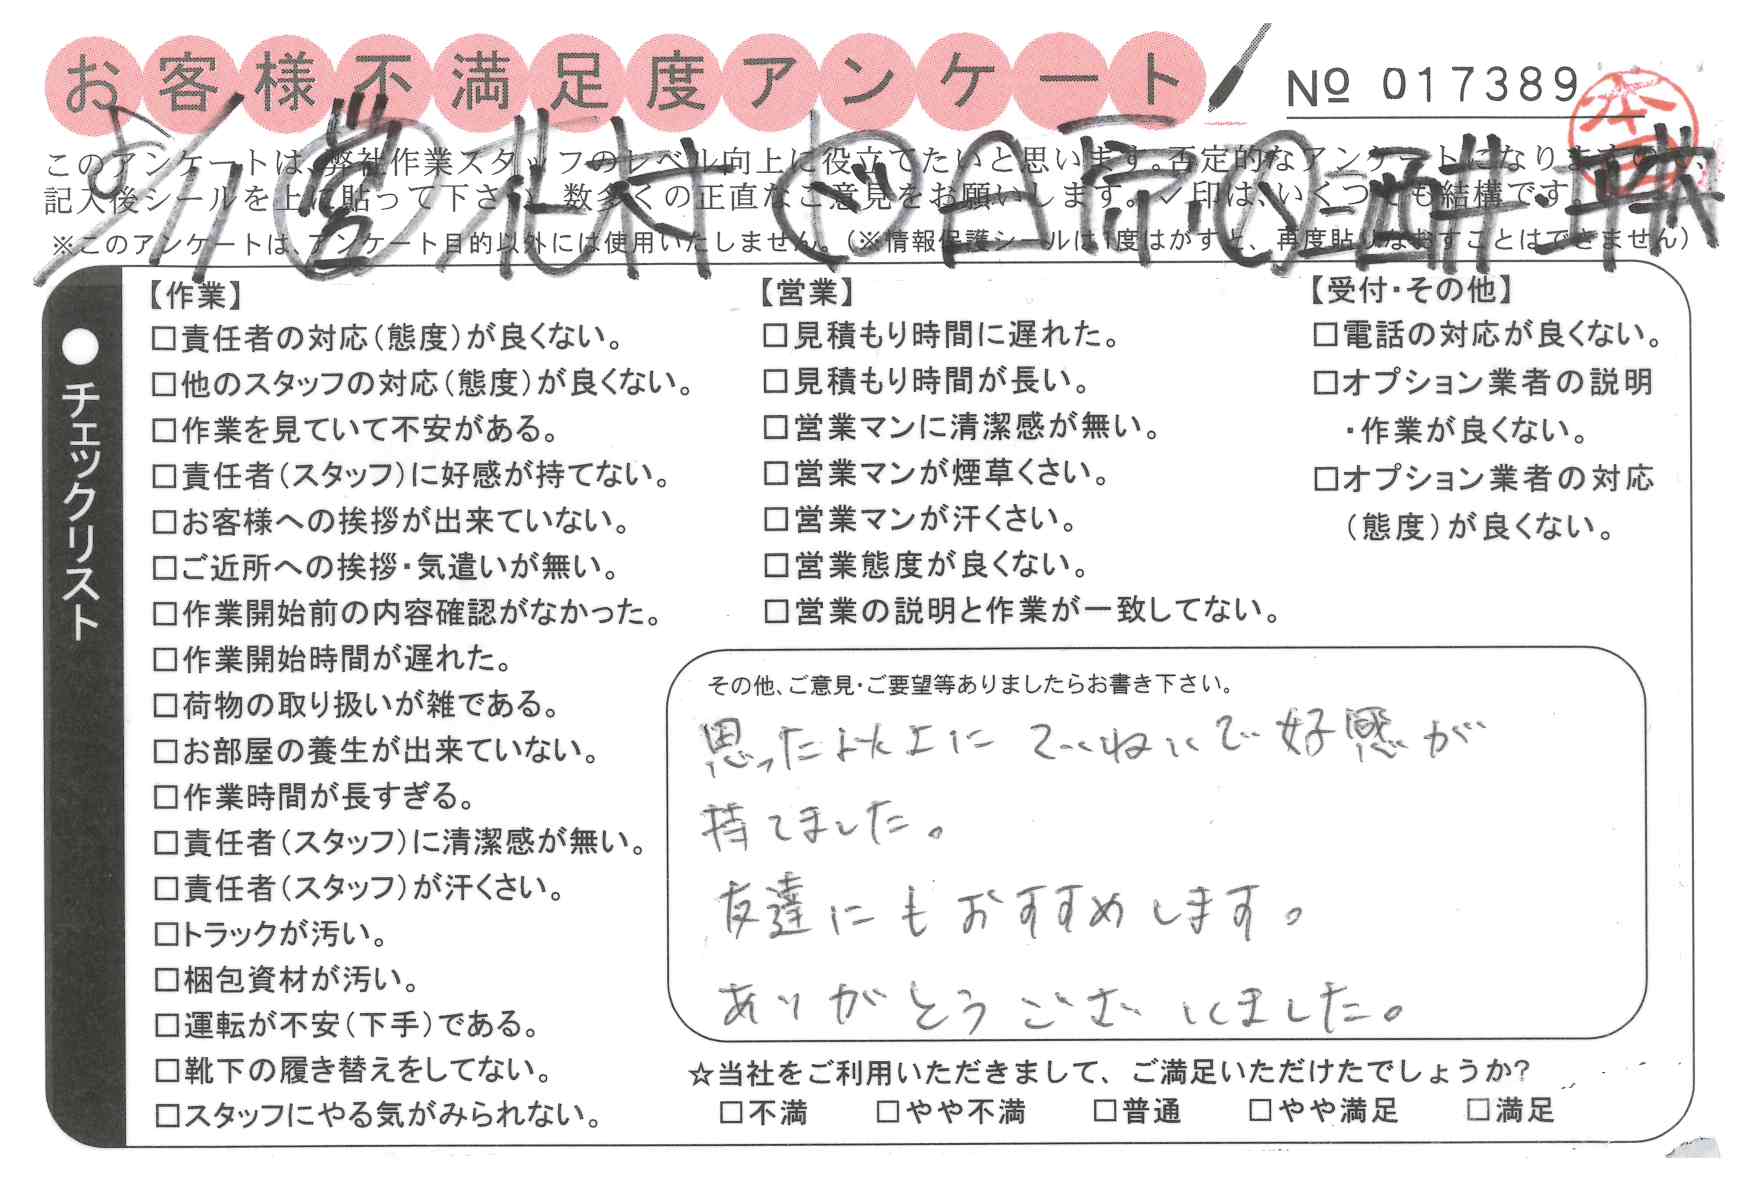 お客様不満足度アンケート
No 017389
このアンケートは、弊社作業スタッフのレベル向上に役立てたいと思います。否定的なアンケートになりますので、
記入後シールを上に貼って下さい。数多くの正直なご意見をお願いします。✓印は、いくつでも結構です。
※このアンケートは、アンケート目的以外には使用いたしません。(※情報保護シールは1度はがすと、再度貼りなおすことはできません)
●チェックリスト
【作業】
□責任者の対応(態度)が良くない。
□他のスタッフの対応(態度)が良くない。
□作業を見ていて不安がある。
□責任者(スタッフ)に好感が持てない。
□お客様への挨拶が出来ていない。
□ご近所への挨拶・気遣いが無い。
□作業開始前の内容確認がなかった。
□作業開始時間が遅れた。
□荷物の取り扱いが雑である。
□お部屋の養生が出来ていない。
□作業時間が長すぎる。
□責任者(スタッフ)に清潔感が無い。
□責任者(スタッフ)が汗くさい。
□トラックが汚い。
□梱包資材が汚い。
□運転が不安(下手)である。
□靴下の履き替えをしてない。
□スタッフにやる気がみられない。
【営業】
□見積もり時間に遅れた。
□見積もり時間が長い。
□営業マンに清潔感が無い。
□営業マンが煙草くさい。
□営業マンが汗くさい。
□営業態度が良くない。
□営業の説明と作業が一致してない。
【受付・その他】
□電話の対応が良くない。
□オプション業者の説明
・作業が良くない。
□オプション業者の対応
(態度)が良くない。
その他、ご意見・ご要望等ありましたらお書き下さい。
思った以上にていねいで好感が
持てました。
友達にもおすすめします。
ありがとうございました。
☆当社をご利用いただきまして、ご満足いただけたでしょうか?
□不満 □やや不満 □普通 □やや満足 □満足